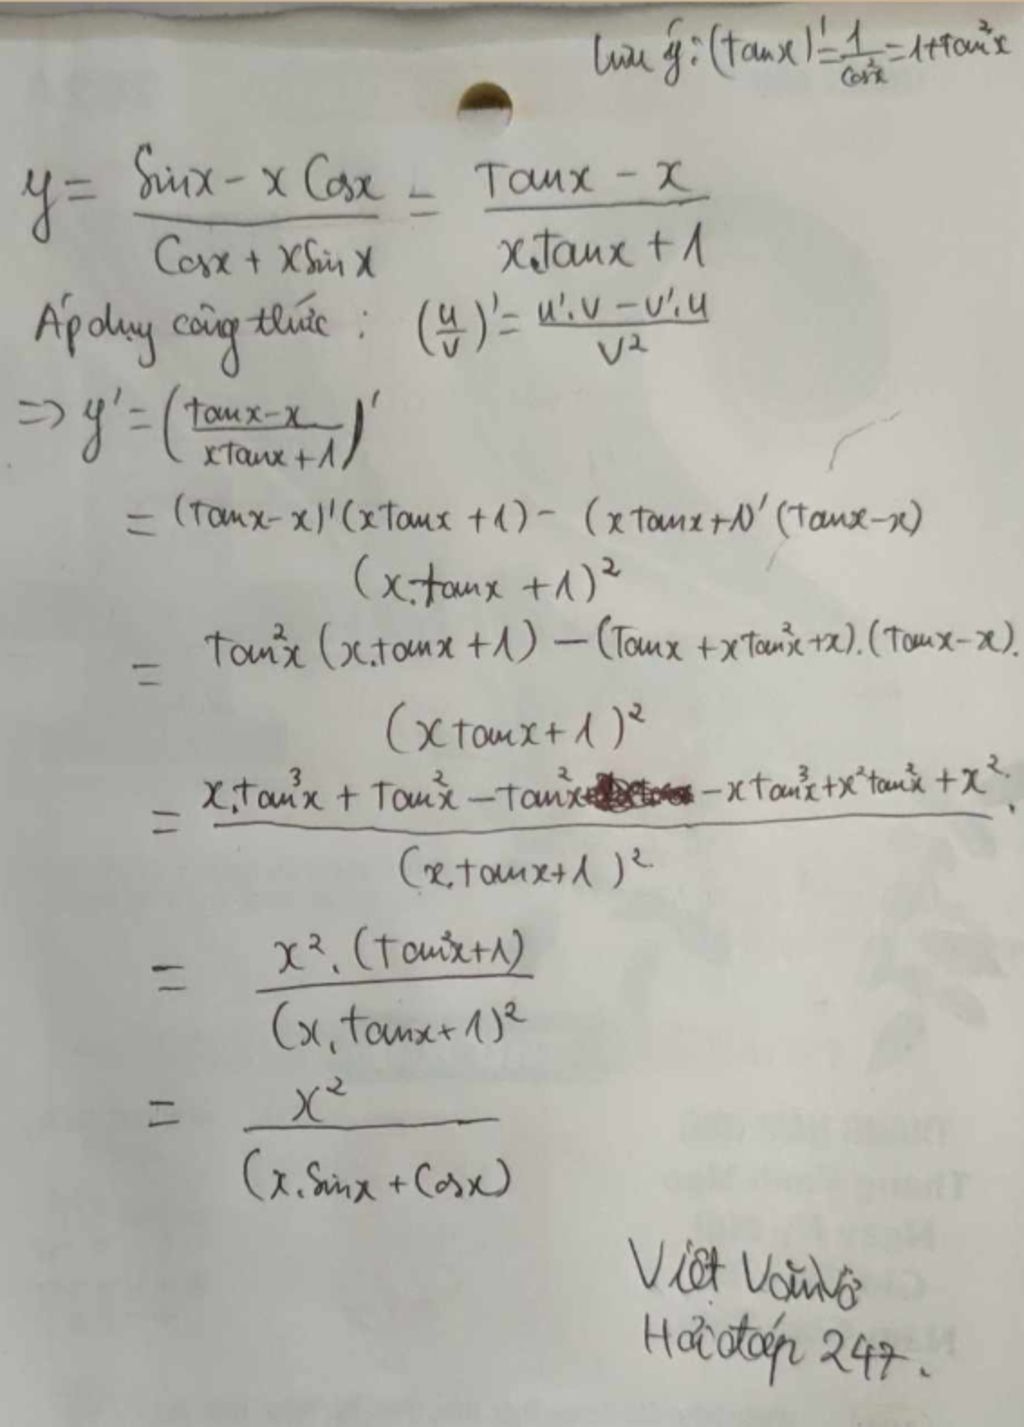 Lưu ý: (tanx)' = 1/cos²x = 1+tan²x
y = (Sinx - x Cosx)/(Cosx + xSinx) = (Tanx - x)/(x.Tanx + 1)
Áp dụng công thức : (u/v)' = (u'.v - v'.u)/v²
=> y' = ((tanx-x)/(xtanx+1))'
= (Tanx-x)'(xTanx +1) - (xtanx+1)'(Tanx-x)
(x.tanx +1)²
= Tan²x (x.tanx +1) - (Tanx + xTan²x +x).(Tanx-x).
(xtanx+1)²
= (x.tan³x + Tan²x - Tan²x - xtan³x + x²tan²x + x²)/(x.tanx+1)²
= (x².(Tan²x+1))/(x.tanx+1)²
= x²/(x.Sinx + Cosx)
Việt Văn Võ
Hỏi đáp 247.